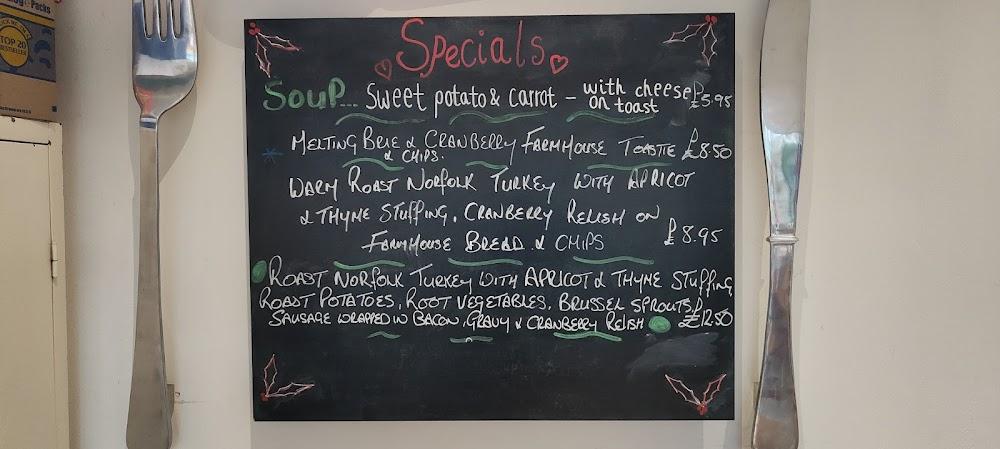 Packs
TOP 20
BESTSELLER
Specials
SOUP... Sweet potato & carrot - with cheese on toast £5.95
MELTING BRIE & CRANBERRY FARMHOUSE TOASTIE £8.50
& CHIPS.
WARM ROAST NORFOLK TURKEY WITH APRICOT
& THYME STUFFING, CRANBERRY RELISH ON
FARMHOUSE BREAD & CHIPS £8.95
ROAST NORFOLK TURKEY WITH APRICOT & THYME STUFFING
ROAST POTATOES, ROOT VEGETABLES, BRUSSEL SPROUTS,
SAUSAGE WRAPPED IN BACON, GRAVY & CRANBERRY RELISH £12.50